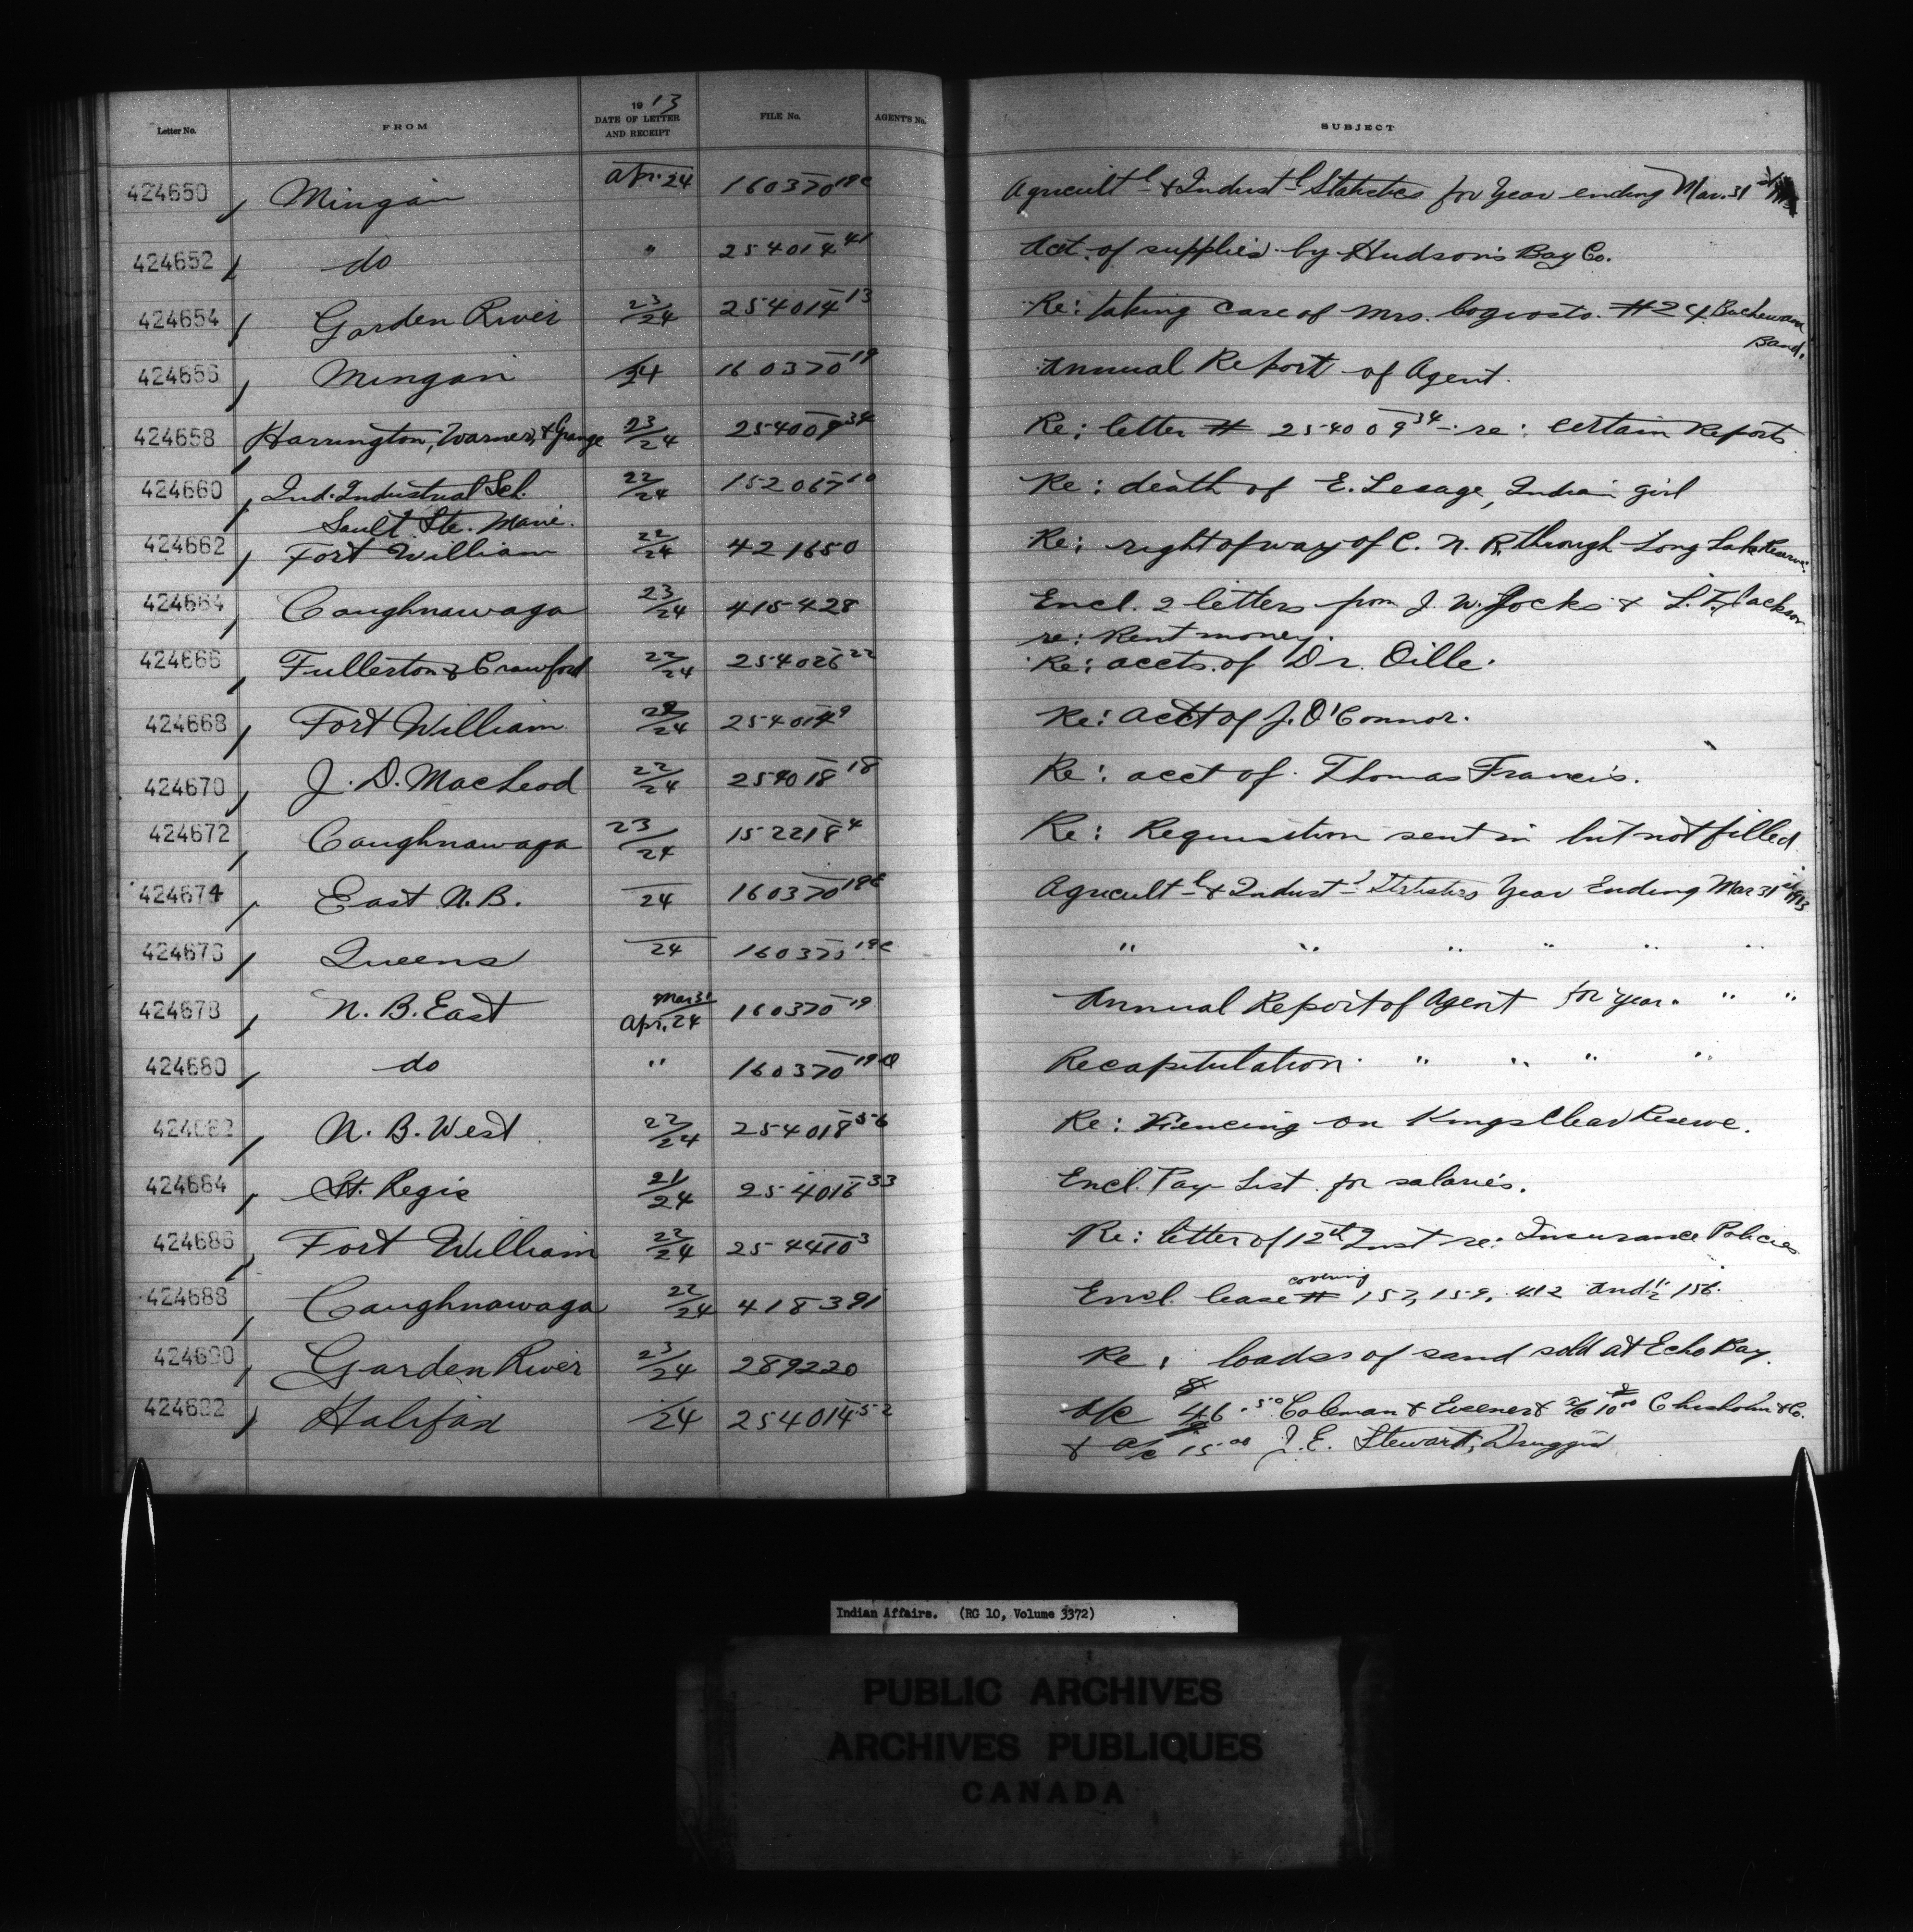 Letter No. FROM 1913 DATE OF LETTER AND RECEIPT FILE No. AGENT'S No. SUBJECT
424650 Mingan Apr. 24 160370 19c Agricult-l & Indust-l Statistics for Year ending Mar. 31
424652 do " 254014 41 Acct. of supplies by Hudson's Bay Co.
424654 Garden River 23/24 254014 13 Re: taking care of Mrs. #24 Bachewana
Band.
424656 Mingan 24 160370 19 Annual Report of Agent.
424658 Harrington, Warner, & Grange 23/24 254009 34 Re: letter # 254009 34 re: certain Reports
424660 Ind. Industrial Sch. 22/24 152067 10 Re: death of E. Lesage, Indian girl
Sault Ste. Marie.
424662 Fort William 22/24 421650 Re: right of way of C. N. R. through Long Lake Reserve.
424664 Caughnawaga 23/24 415428 Encl. 2 letters from J. W. Jocks & L. F. Jackson
re: Rent money.
424666 Fullerton & Crawford 22/24 254026 22 Re: accts. of Dr. Oille.
424668 Fort William 22/24 254014 9 Re: acct of J. O'Connor.
424670 J. D. MacLeod 22/24 254018 18 Re: acct of Thomas Francis.
424672 Caughnawaga 23/24 152218 4 Re: Requisition sent in but not filled
424674 East N. B. 24 160370 19c Agricult-l & Indust-l Statistics Year Ending Mar 31 1913
424676 Queens 24 160370 19c " " " " " "
424678 N. B. East Mar 31 Apr. 24 160370 19 Annual Report of Agent for year. " "
424680 do " 160370 19 Recapitulation " " " "
424682 N. B. West 22/24 254018 56 Re: Fencing on Kingsclear Reserve.
424684 St. Regis 21/24 254016 33 Encl. Pay List for salaries.
424686 Fort William 22/24 254410 3 Re: letter of 12th Inst re: Insurance Policies
424688 Caughnawaga 22/24 418391 Encl. lease covering # 157, 159, 412 and ½ 156.
424690 Garden River 23/24 289220 Re: loads of sand sold at Echo Bay.
424692 Halifax 24 254014 52 a/c 46.50 Coleman & a/c 10.00 Chisholm & Co.
& a/c 15.00 J. E. Stewart, Druggist
Indian Affairs. (RG 10, Volume 3372)
PUBLIC ARCHIVES
ARCHIVES PUBLIQUES
CANADA